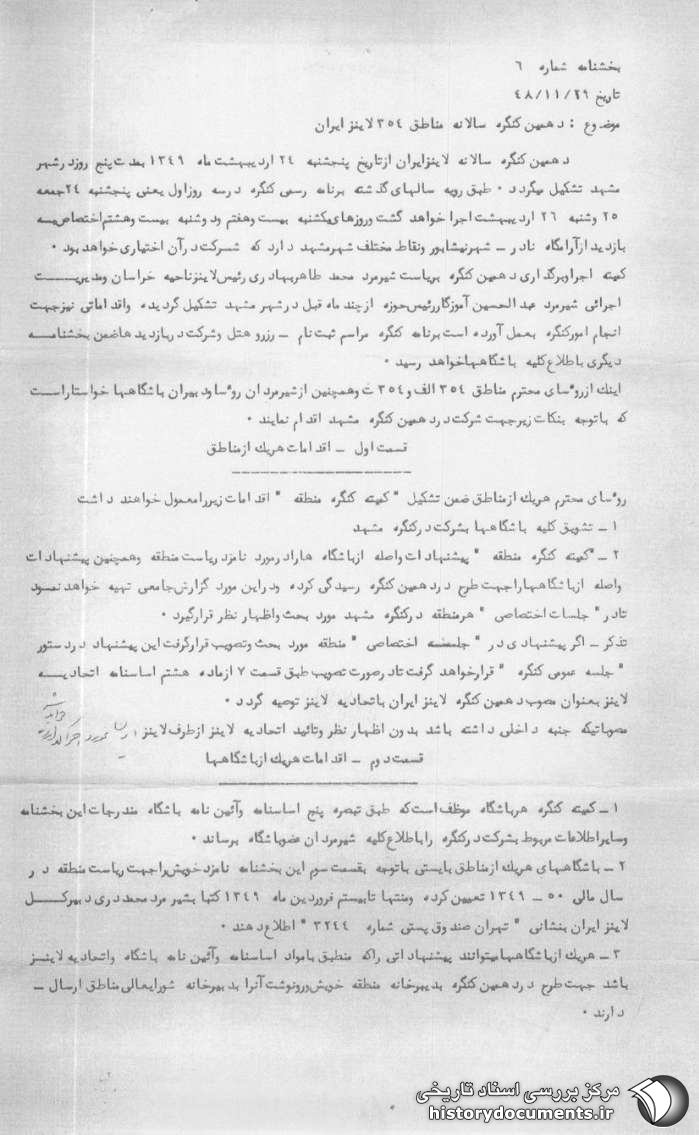 بخشنامه شماره ۶
تاریخ ۴۸/۱۱/۲۹
موضوع : دهمین کنگره سالانه مناطق ۳۵۴ لاینز ایران
دهمین کنگره سالانه لاینزایران ازتاریخ پنجشنبه ۲۴ اردیبهشت ماه ۱۳۴۹ بمدت پنج روزدرشهر
مشهد تشکیل میگردد ۰ طبق رویه سالهای گذشته برنامه رسمی کنگره درسه روزاول یعنی پنجشنبه ۲۴جمعه
۲۵ وشنبه ۲۶ اردیبهشت اجرا خواهد گشت وروزهای یکشنبه بیست وهفتم ودوشنبه بیست وهشتم اختصاص به
بازدید ازآرامگاه نادر ــ شهرنیشابور ونقاط مختلف شهرمشهد دارد که شرکت درآن اختیاری خواهد بود ۰
کمیته اجراوبرگذاری دهمین کنگره بریاست شیرمرد محمد طاهربهادری رئیس لاینز ناحیه خراسان ومدیریت
اجرائی شیرمرد عبدالحسین آموزگاررئیس حوزه ازچند ماه قبل درشهر مشهد تشکیل گردیده واقداماتی نیزجهت
انجام امورکنگره بعمل آورده است برنامه کنگره مراسم ثبت نام ــ رزرو هتل وشرکت دربازدید هاضمن بخشنامه
دیگری باطلاع کلیه باشگاهها خواهد رسید ۰
اینک ازروسای محترم مناطق ۳۵۴ الف و۳۵۴ ث وهمچنین ازشیرمردان روسا ودبیران باشگاهها خواستاراست
که باتوجه بنکات زیرجهت شرکت دردهمین کنگره مشهد اقدام نمایند ۰
قسمت اول ــ اقدامات هریک ازمناطق
روسای محترم هریک ازمناطق ضمن تشکیل " کمیته کنگره منطقه " اقدامات زیررامعمول خواهند داشت
۱ ــ تشویق کلیه باشگاهها بشرکت درکنگره مشهد
۲ ــ "کمیته کنگره منطقه " پیشنهادات واصله ازباشگاه هارادرمورد نامزد ریاست منطقه وهمچنین پیشنهادات
واصله ازباشگاههاراجهت طرح دردهمین کنگره رسیدگی کرده ودراین مورد گزارش جامعی تهیه خواهد نمود
تادر " جلسات اختصاصی " هرمنطقه درکنگره مشهد مورد بحث واظهار نظر قرارگیرد ۰
تذکر ــ اگر پیشنهادی در " جلسه اختصاصی " منطقه مورد بحث وتصویب قرارگرفت این پیشنهاد دردستور
" جلسه عمومی کنگره " قرارخواهد گرفت تادرصورت تصویب طبق قسمت ۷ ازماده هشتم اساسنامه اتحادیه
لاینز بعنوان مصوب دهمین کنگره لاینز ایران باتحادیه لاینز توصیه گردد ۰
مصوباتیکه جنبه داخلی داشته باشد بدون اظهار نظر وتائید اتحادیه لاینز ازطرف لاینز
قسمت دوم ــ اقدامات هریک ازباشگاهها
۱ ــ کمیته کنگره هرباشگاه موظف است که طبق تبصره پنج اساسنامه وآئین نامه باشگاه مندرجات این بخشنامه
وسایراطلاعات مربوط بشرکت درکنگره راباطلاع کلیه شیرمردان عضوباشگاه برساند ۰
۲ ــ باشگاههای هریک ازمناطق بایستی باتوجه بقسمت سوم این بخشنامه نامزد خویش راجهت ریاست منطقه در
سال مالی ۵۰ ــ ۱۳۴۹ تعیین کرده ومنتها تابیستم فروردین ماه ۱۳۴۹ کتبا بشیر مرد محمد دری دبیرکل
لاینز ایران بنشانی " تهران صندوق پستی شماره ۳۲۴۴ " اطلاع دهند ۰
۳ ــ هریک ازباشگاهها میتوانند پیشنهاداتی راکه منطبق بامواد اساسنامه وآئین نامه باشگاه واتحادیه لاینز
باشد جهت طرح دردهمین کنگره بدبیرخانه منطقه خویش ورونوشت آنرا بدبیرخانه شورایعالی مناطق ارسال ــ
دارند ۰
مرکز بررسی اسناد تاریخی
historydocuments.ir